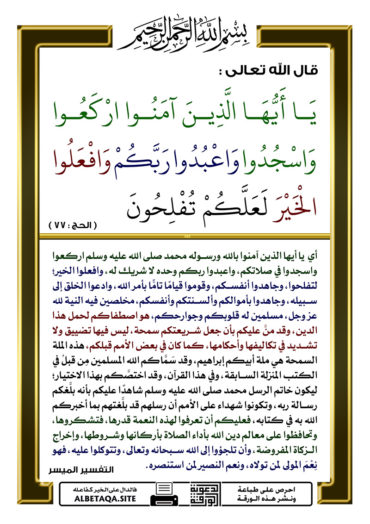 بسم الله الرحمن الرحيم
قال الله تعالى :
يَا أَيُّهَا الَّذِينَ آمَنُوا ارْكَعُوا
وَاسْجُدُوا وَاعْبُدُوا رَبَّكُمْ وَافْعَلُوا
الْخَيْرَ لَعَلَّكُمْ تُفْلِحُونَ
( الحج : ٧٧ )
أي يا أيها الذين آمنوا بالله ورسوله محمد صلى الله عليه وسلم اركعوا
واسجدوا في صلاتكم، واعبدوا ربكم وحده لا شريك له، وافعلوا الخير؛
لتفلحوا، وجاهدوا أنفسكم، وقوموا قيامًا تامًا بأمر الله، وادعوا الخلق إلى
سبيله، وجاهدوا بأموالكم وألسنتكم وأنفسكم، مخلصين فيه النية لله
عز وجل، مسلمين له قلوبكم وجوارحكم، هو اصطفاكم لحمل هذا
الدين، وقد منَّ عليكم بأن جعل شريعتكم سمحة، ليس فيها تضييق ولا
تشديد في تكاليفها وأحكامها، كما كان في بعض الأمم قبلكم، هذه الملة
السمحة هي ملة أبيكم إبراهيم، وقد سَمَّاكم الله المسلمين مِن قبلُ في
الكتب المنزلة السابقة، وفي هذا القرآن، وقد اختصَّكم بهذا الاختيار؛
ليكون خاتم الرسل محمد صلى الله عليه وسلم شاهدًا عليكم بأنه بلَّغكم
رسالة ربه، وتكونوا شهداء على الأمم أن رسلهم قد بلَّغتهم بما أخبركم
الله به في كتابه، فعليكم أن تعرفوا لهذه النعمة قدرها، فتشكروها،
وتحافظوا على معالم دين الله بأداء الصلاة بأركانها وشروطها، وإخراج
الزكاة المفروضة، وأن تلجؤوا إلى الله سبحانه وتعالى، وتتوكلوا عليه، فهو
نِعْمَ المولى لمن تولاه، ونعم النصير لمن استنصره.
التفسير الميسر
احرص على طباعة
ونشر هذه الورقة
دعوية
الورقة
فالدال على الخير كفاعله
ALBETAQA.SITE